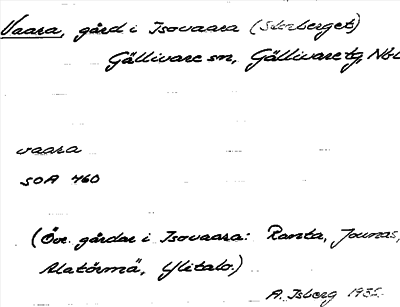 Vaara, gård i Isovaara (Storberget)
Gällivare sn, Gällivare tg, Nbl
vaara
SOA 460
(Övr. gårdar i Isovaara: Ranta, Jounas,
Alatörmä, Ylitalo.)
A. Isberg 1932.